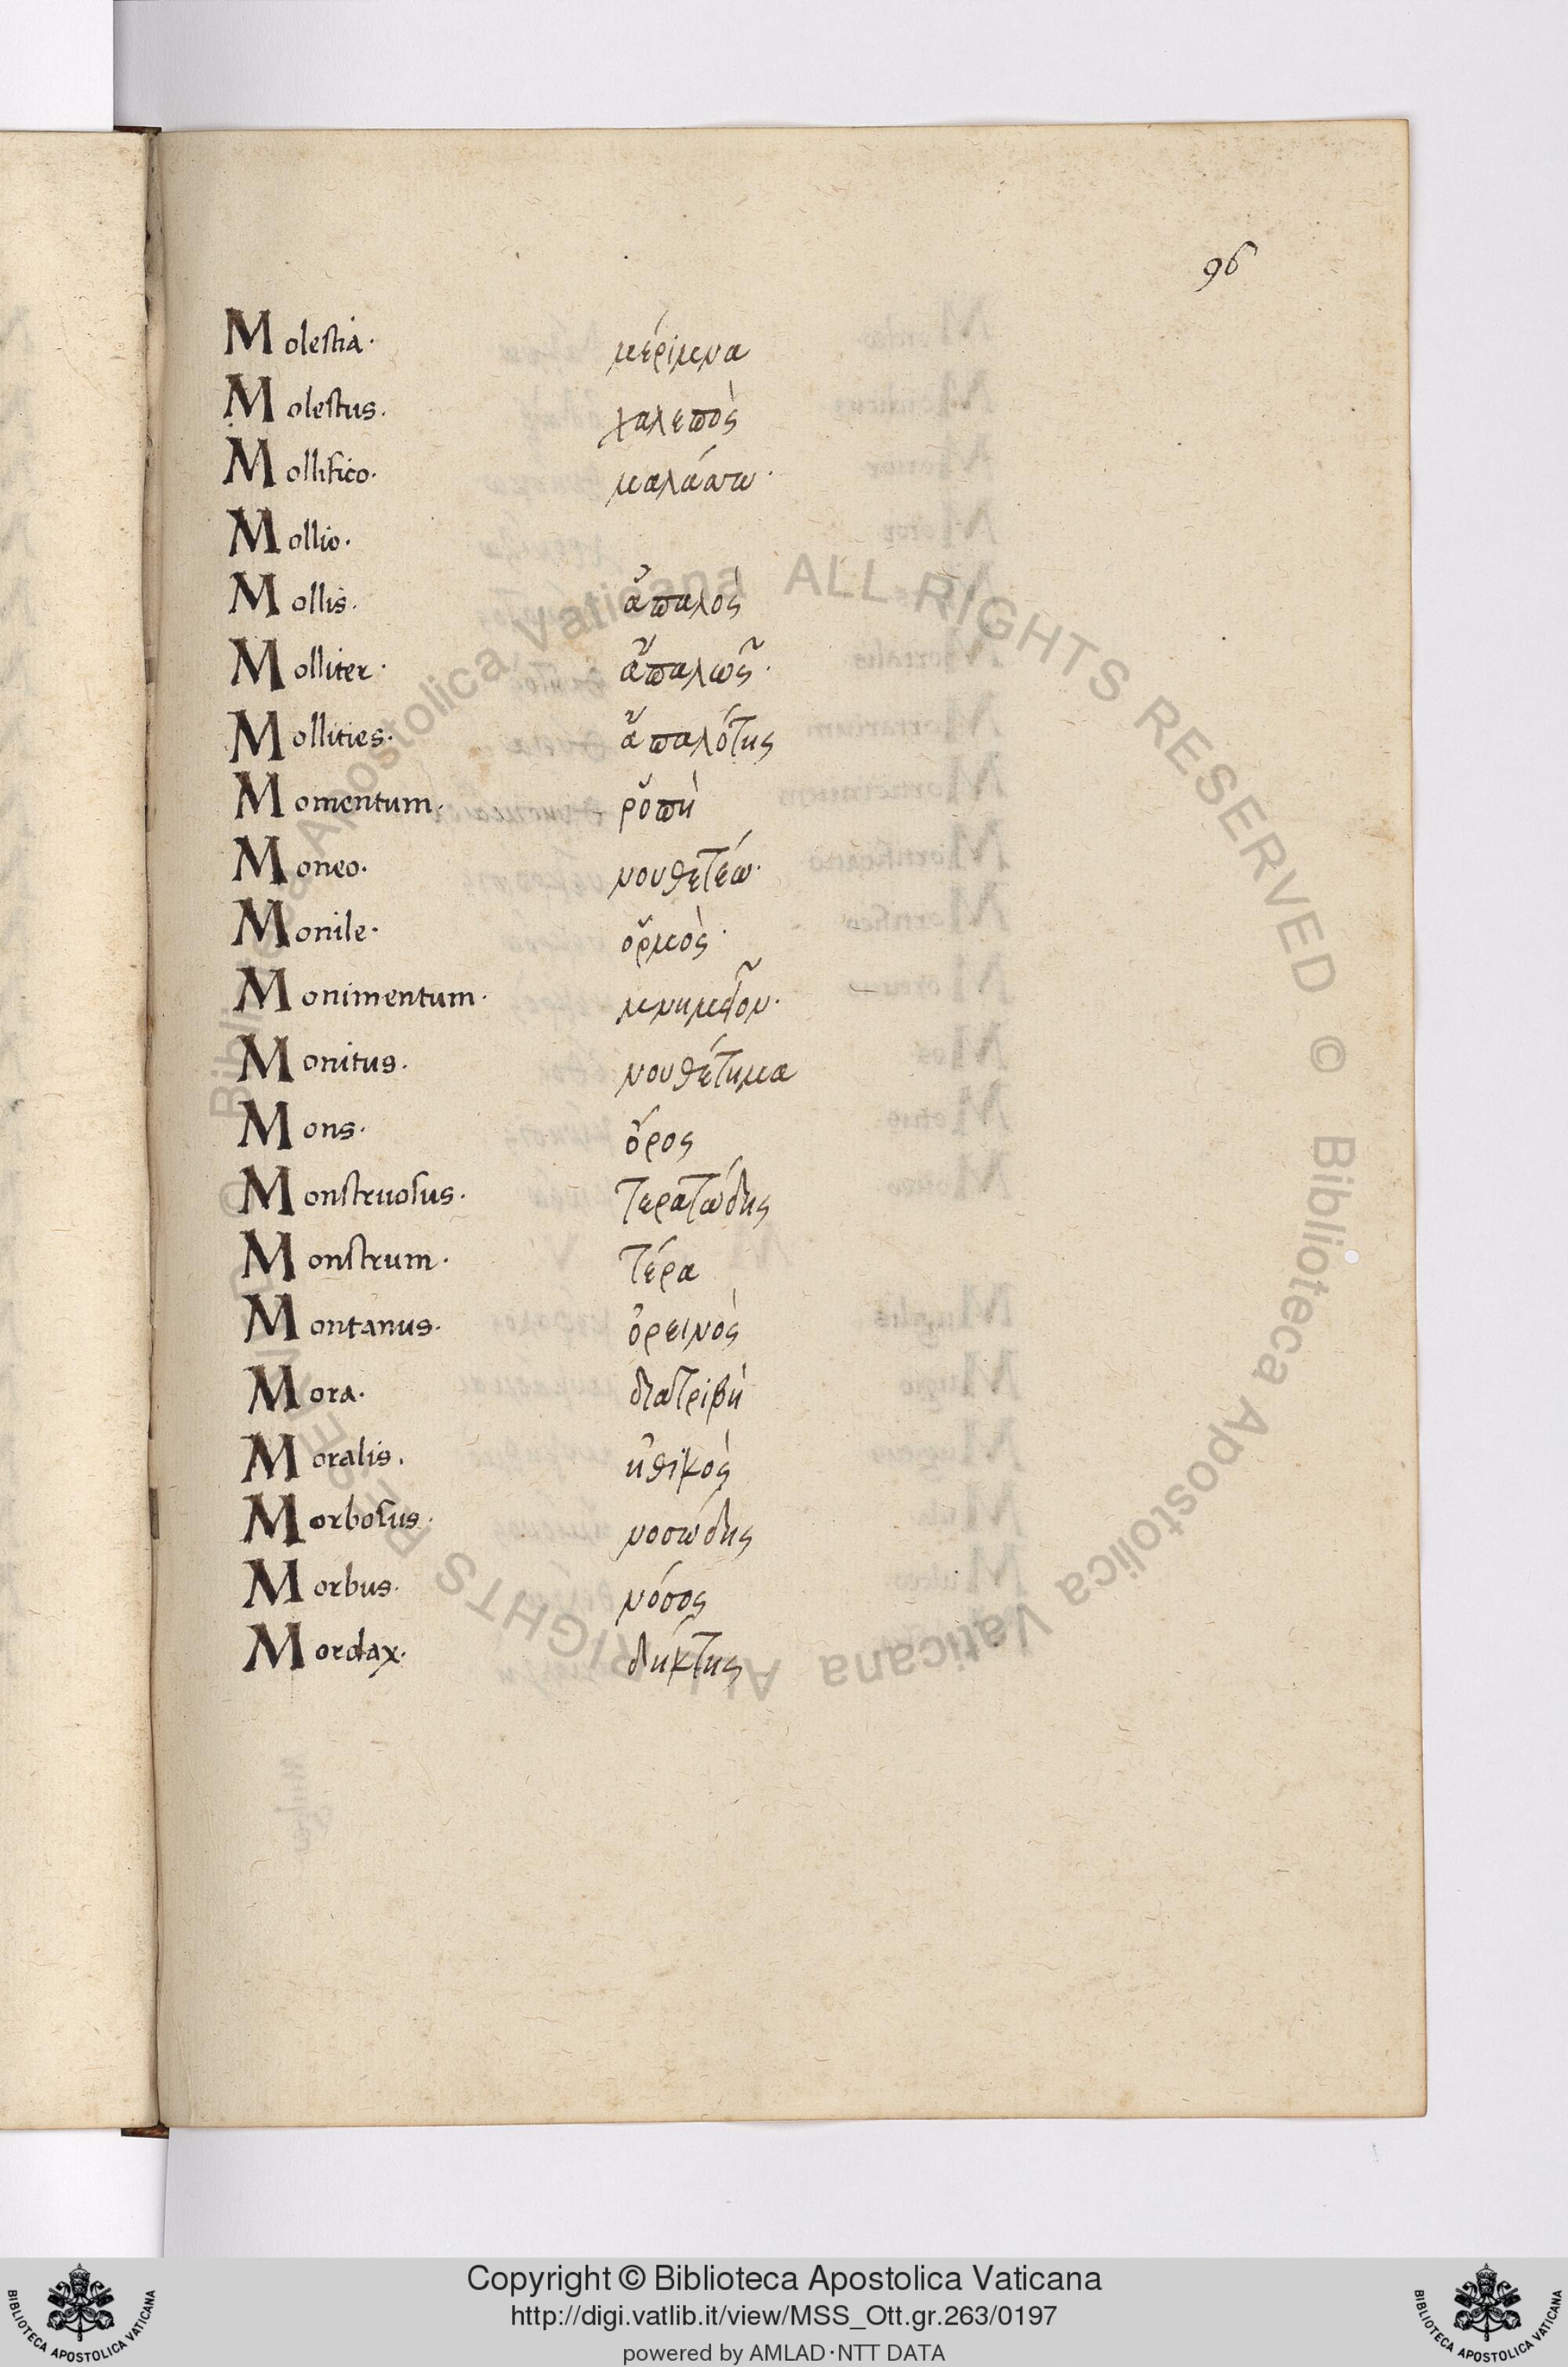 96
Molestia· μέριμνα
Molestus· χαλεπὸς
Mollifico· μαλάττω·
Mollio·
Mollis· ἄπαλὸς
Molliter· ἄπαλῶς·
Mollities· ἄπαλότης
Momentum· ῥοπὴ
Moneo· νουθετέω·
Monile· ὅρμὸς·
Monimentum· μνημεῖον·
Monitus· νουθέτημα
Mons· ὄρος
Monstruosus· τερατώδης
Monstrum· τέρα
Montanus· ὀρεινὸς
Mora· διατριβὴ
Moralis· ἠθικὸς
Morbosus· νοσώδης
Morbus· νόσος
Mordax· δήκτης
Copyright © Biblioteca Apostolica Vaticana
http://digi.vatlib.it/view/MSS_Ott.gr.263/0197
powered by AMLAD·NTT DATA
BIBLIOTECA APOSTOLICA VATICANA
BIBLIOTECA APOSTOLICA VATICANA
© Biblioteca Apostolica Vaticana ALL RIGHTS RESERVED © Biblioteca Apostolica Vaticana ALL RIGHTS RESERVED